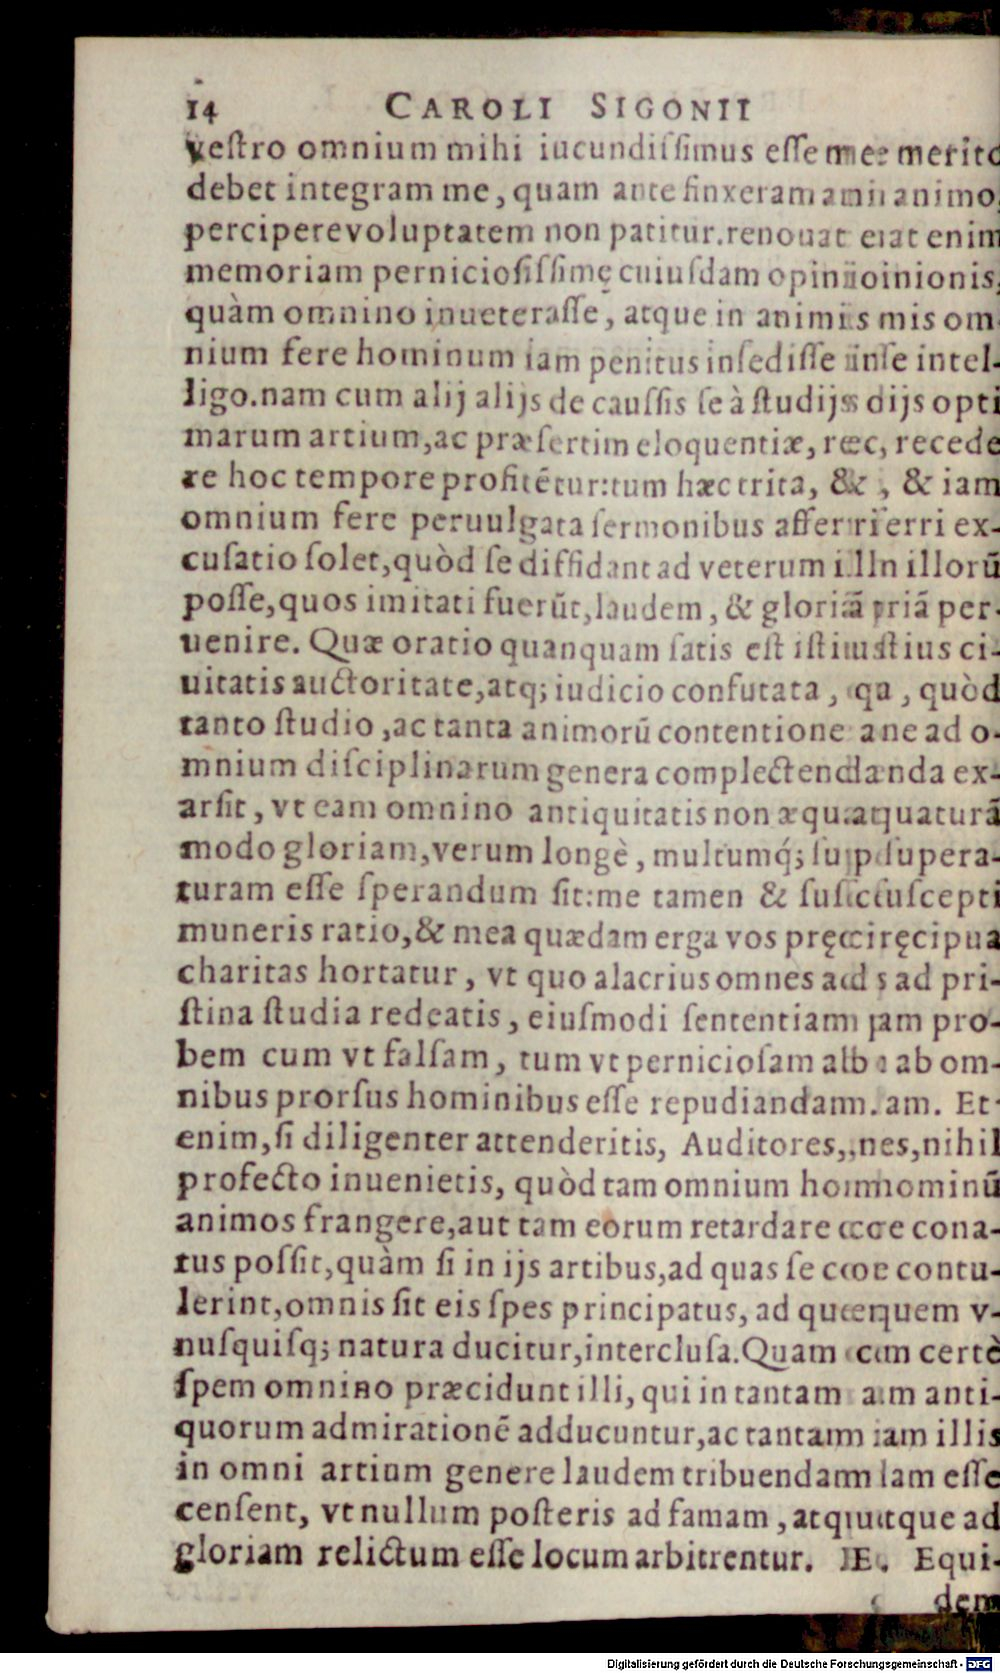 14 CAROLI SIGONII
veſtro omnium mihi iucundiſſimus eſſe merito
debet integram me, quam ante finxeram animo,
percipere voluptatem non patitur. renouat enim
memoriam pernicioſiſſimę cuiuſdam opinionis,
quàm omnino inueteraſſe, atque in animis om
nium fere hominum iam penitus inſediſſe intel-
ligo. nam cum alij alijs de cauſsis ſe à ſtudijs opti
marum artium, ac præſertim eloquentiæ, recede
re hoc tempore profitētur: tum hæc trita, & iam
omnium fere peruulgata ſermonibus afferri ex-
cuſatio ſolet, quòd ſe diffidant ad veterum illorū
poſſe, quos imitati fuerūt, laudem, & gloriā per-
uenire. Quæ oratio quanquam ſatis eſt iſtius ci-
uitatis auctoritate, atq; iudicio confutata, quòd
tanto ſtudio, ac tanta animorū contentione ad o-
mnium diſciplinarum genera complectenda ex-
arſit, vt eam omnino antiquitatis non æquaturā
modo gloriam, verum longè, multumq́; ſupera-
turam eſſe ſperandum ſit: me tamen & ſuſcepti
muneris ratio, & mea quædam erga vos pręcipua
charitas hortatur, vt quo alacrius omnes ad pri-
ſtina ſtudia redeatis, eiuſmodi ſententiam pro-
bem cum vt falſam, tum vt pernicioſam ab om-
nibus prorſus hominibus eſſe repudiandam. Et-
enim, ſi diligenter attenderitis, Auditores, nihil
profecto inuenietis, quòd tam omnium hominū
animos frangere, aut tam eorum retardare cona-
tus poſſit, quàm ſi in ijs artibus, ad quas ſe contu-
lerint, omnis ſit eis ſpes principatus, ad quem v-
nuſquiſq; natura ducitur, intercluſa. Quam certè
ſpem omnino præcidunt illi, qui in tantam anti-
quorum admirationē adducuntur, ac tantam iam illis
in omni artium genere laudem tribuendam eſſe
cenſent, vt nullum poſteris ad famam, atque ad
gloriam relictum eſſe locum arbitrentur. Equi-
dem
Digitalisierung gefördert durch die Deutsche Forschungsgemeinschaft - DFG